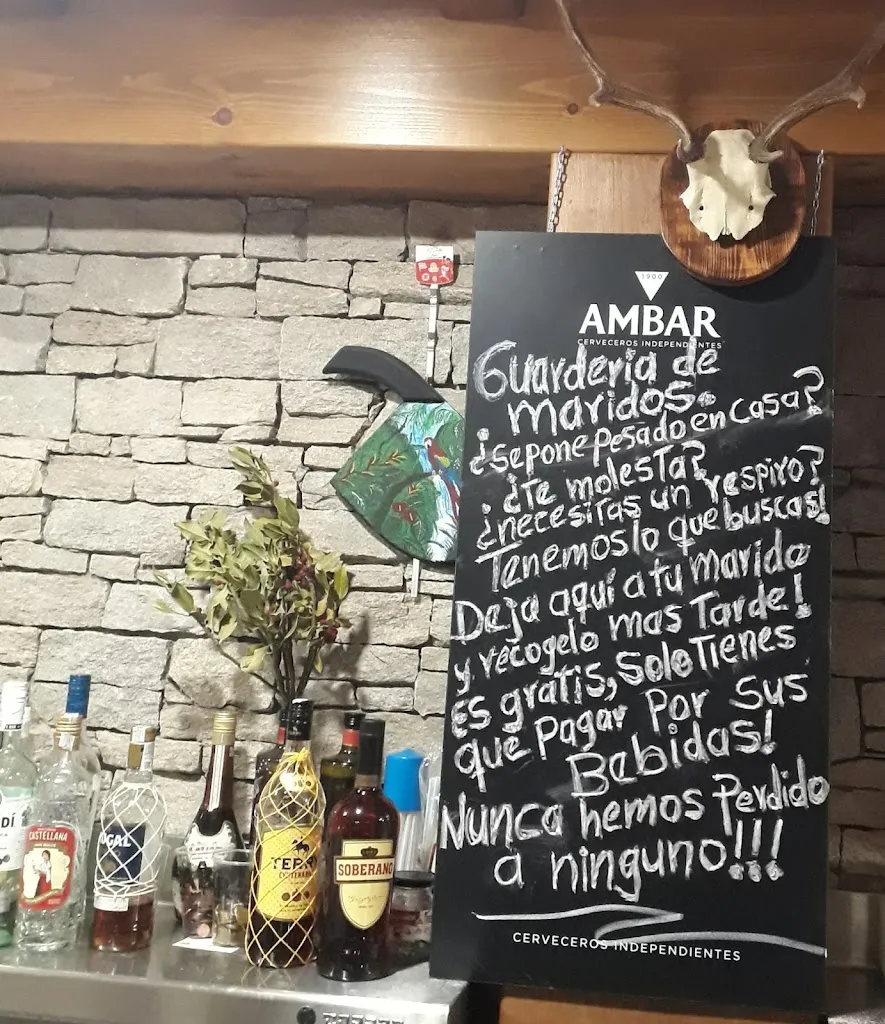 1900
AMBAR
CERVECEROS INDEPENDIENTES
Guarderia de
maridos.
¿se pone pesado en casa?
¿Te molesta?
¿necesitas un respiro?
Tenemos lo que buscas!
Deja aquí a tu marido
y recogelo mas Tarde!
Es gratis, Solo Tienes
que Pagar Por Sus
Bebidas!
Nunca hemos Perdido
a ninguno!!!
CERVECEROS INDEPENDIENTES
CASTELLANA
SOBERANO